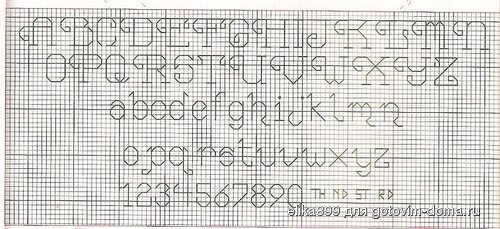 ABCDEFGHIJKLMN
OPQRSTUVWXYZ
abcdefghijklmn
opqrstuvwxyz
1234567890 TH ND ST RD
elka899 для gotovim-doma.ru